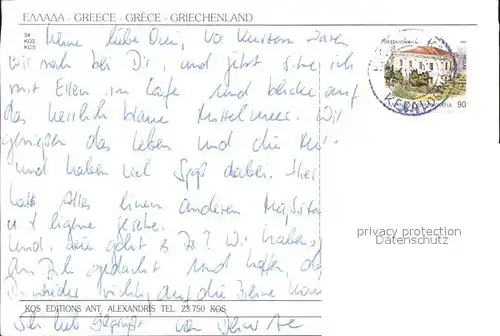 ΕΛΛΑΔΑ - GREECE - GRÈCE - GRIECHENLAND
34
ΚΩΣ
KOS
Meine liebe Omi, Vor kurzem waren
wir noch bei Dir und jetzt sitze ich
mit Ellen im Cafe und blicke auf
das herrlich blaue Mittelmeer. Wir
genießen das Leben und die
und haben viel Spaß dabei. Hier
hat Alles einen anderen Maßstab
und. Wie geht es Dir? Wir haben
an Dich gedacht und hoffen, daß
Du wieder richtig auf die Beine
90
privacy protection
Datenschutz
KOS EDITIONS ANT. ALEXANDRIS TEL. 23.750 KOS
Sei lieb gegrüßt von